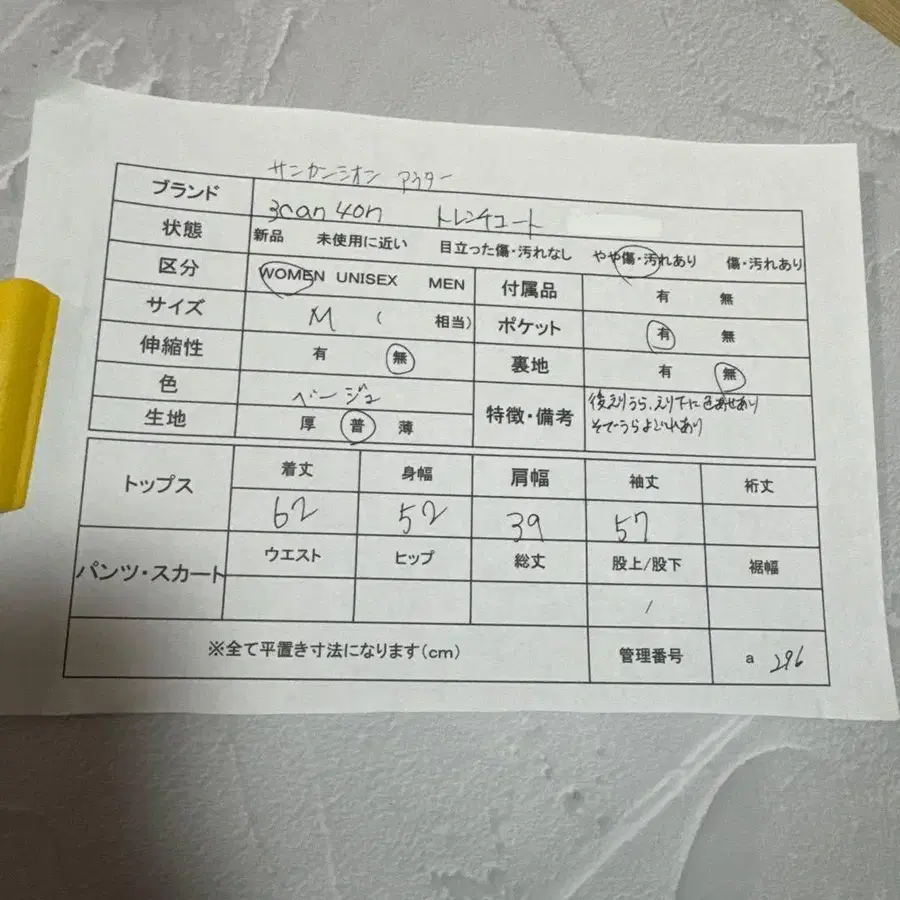 サンカンシオン アウター
ブランド 3can4on トレンチコート
状態 新品 未使用に近い 目立った傷・汚れなし やや傷・汚れあり 傷・汚れあり
区分 WOMEN UNISEX MEN 付属品 有 無
サイズ M ( 相当) ポケット 有 無
伸縮性 有 無 裏地 有 無
色 ベージュ 特徴・備考 後えりうら、えり下に色あせあり
そでうらよごれあり
生地 厚 普 薄
トップス 着丈 身幅 肩幅 袖丈 裄丈
62 52 39 57
パンツ・スカート ウエスト ヒップ 総丈 股上/股下 裾幅
/
※全て平置き寸法になります(cm) 管理番号 a 296